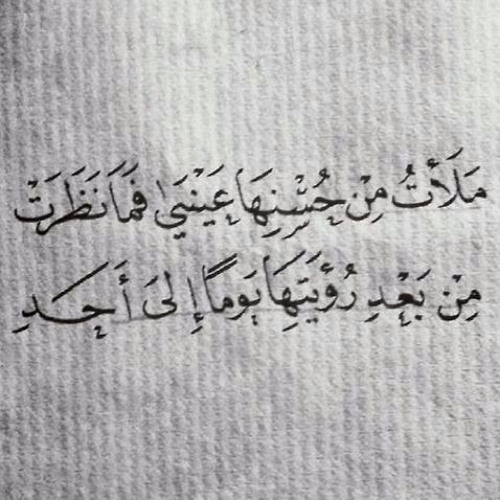 مَلَأتُ مِنْ حُسْنِهَا عَيْنَيَّ فَمَا نَظَرَتْ
مِنْ بَعْدِ رُؤيَتِهَا يَومًا إِلىَ أَحَدِ